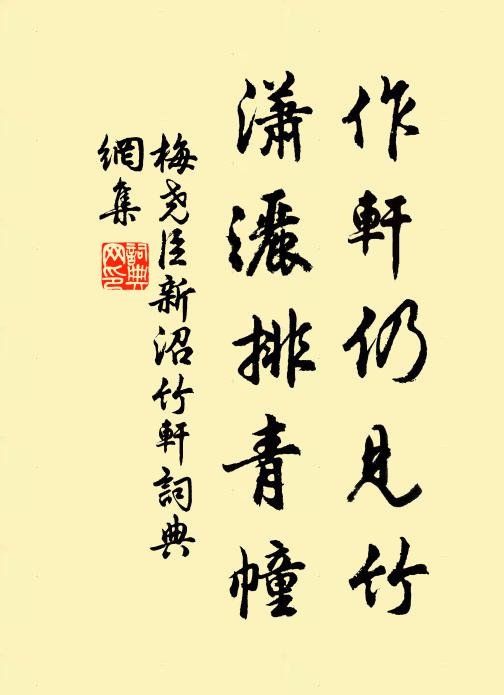 作軒仍見竹
瀟灑排青幢
梅尧臣新沼竹軒詞典
網集
詞典
网印